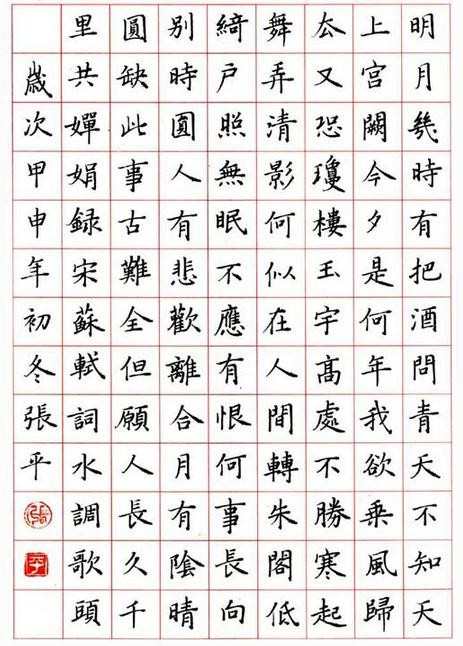 明月幾時有把酒問青天不知天
上宮闕今夕是何年我欲乘風歸
厺又恐瓊樓玉宇高處不勝寒起
舞弄清影何似在人間轉朱閣低
綺戶照無眠不應有恨何事長向
別時圓人有悲歡離合月有陰晴
圓缺此事古難全但願人長久千
里共嬋娟録宋蘇軾詞水調歌頭
歲次甲申年初冬張平
張
平